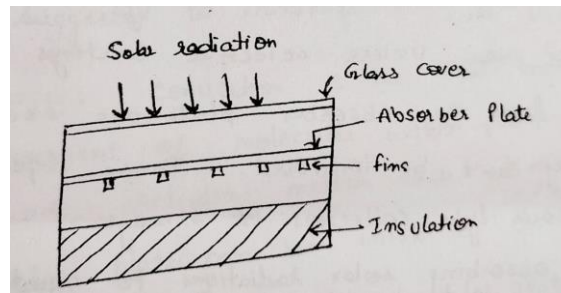 Solar radiation
Glass cover
Absorber Plate
fins
Insulation